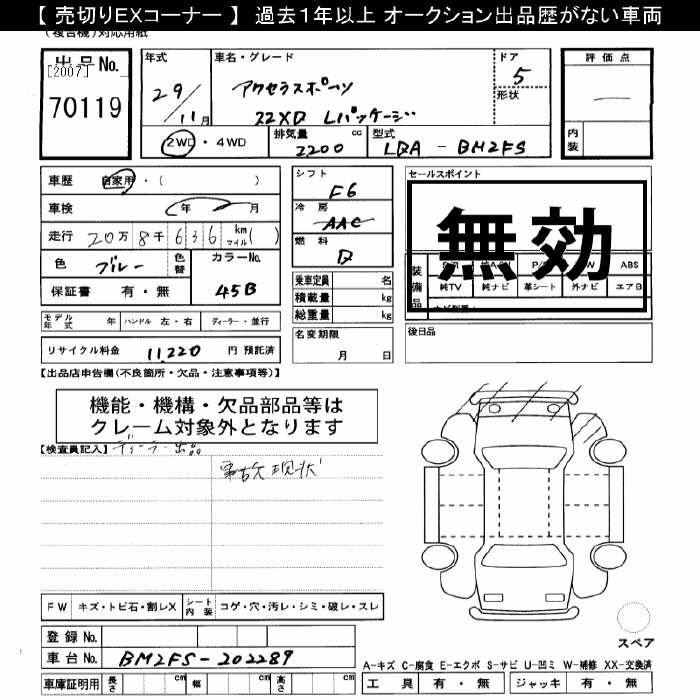 【 売切りEXコーナー 】 過去１年以上 オークション出品歴がない車両
(複合機)対応用紙
出品No.
[2007]
70119
年式
29/11月
車名・グレード
アクセラスポーツ
22XD Lパッケージ
ドア
5
形状
評価点
内装
2WD・4WD
排気量
2200 cc
型式
LDA - BM2FS
車歴 自家用・( )
車検 年 月
走行 20万8千636 km マイル ( )
色 ブルー 色替 カラーNo. 45B
保証書 有・無
モデル年式 年 ハンドル 左・右 ディーラー・並行
リサイクル料金 11,220 円 預託済
シフト
F6
冷房
AAC
燃料
D
乗車定員 名
積載量 kg
総重量 kg
名変期限
月 日
セールスポイント
無効
装備品
ABS
純TV 純ナビ 革シート 外ナビ エアB
後日品
【出品店申告欄(不良箇所・欠品・注意事項等)】
機能・機構・欠品部品等は
クレーム対象外となります
【検査員記入】
ディーラー出品
事故現状
FW キズ・トビ石・割レX シート内装 コゲ・穴・汚レ・シミ・破レ・スレ
登録No.
車台No. BM2FS-202289
車庫証明用 長さ cm 幅 cm 高さ cm
スペア
A-キズ C-腐食 E-エクボ S-サビ U-凹ミ W-補修 XX-交換済
工具 有・無 ジャッキ 有・無